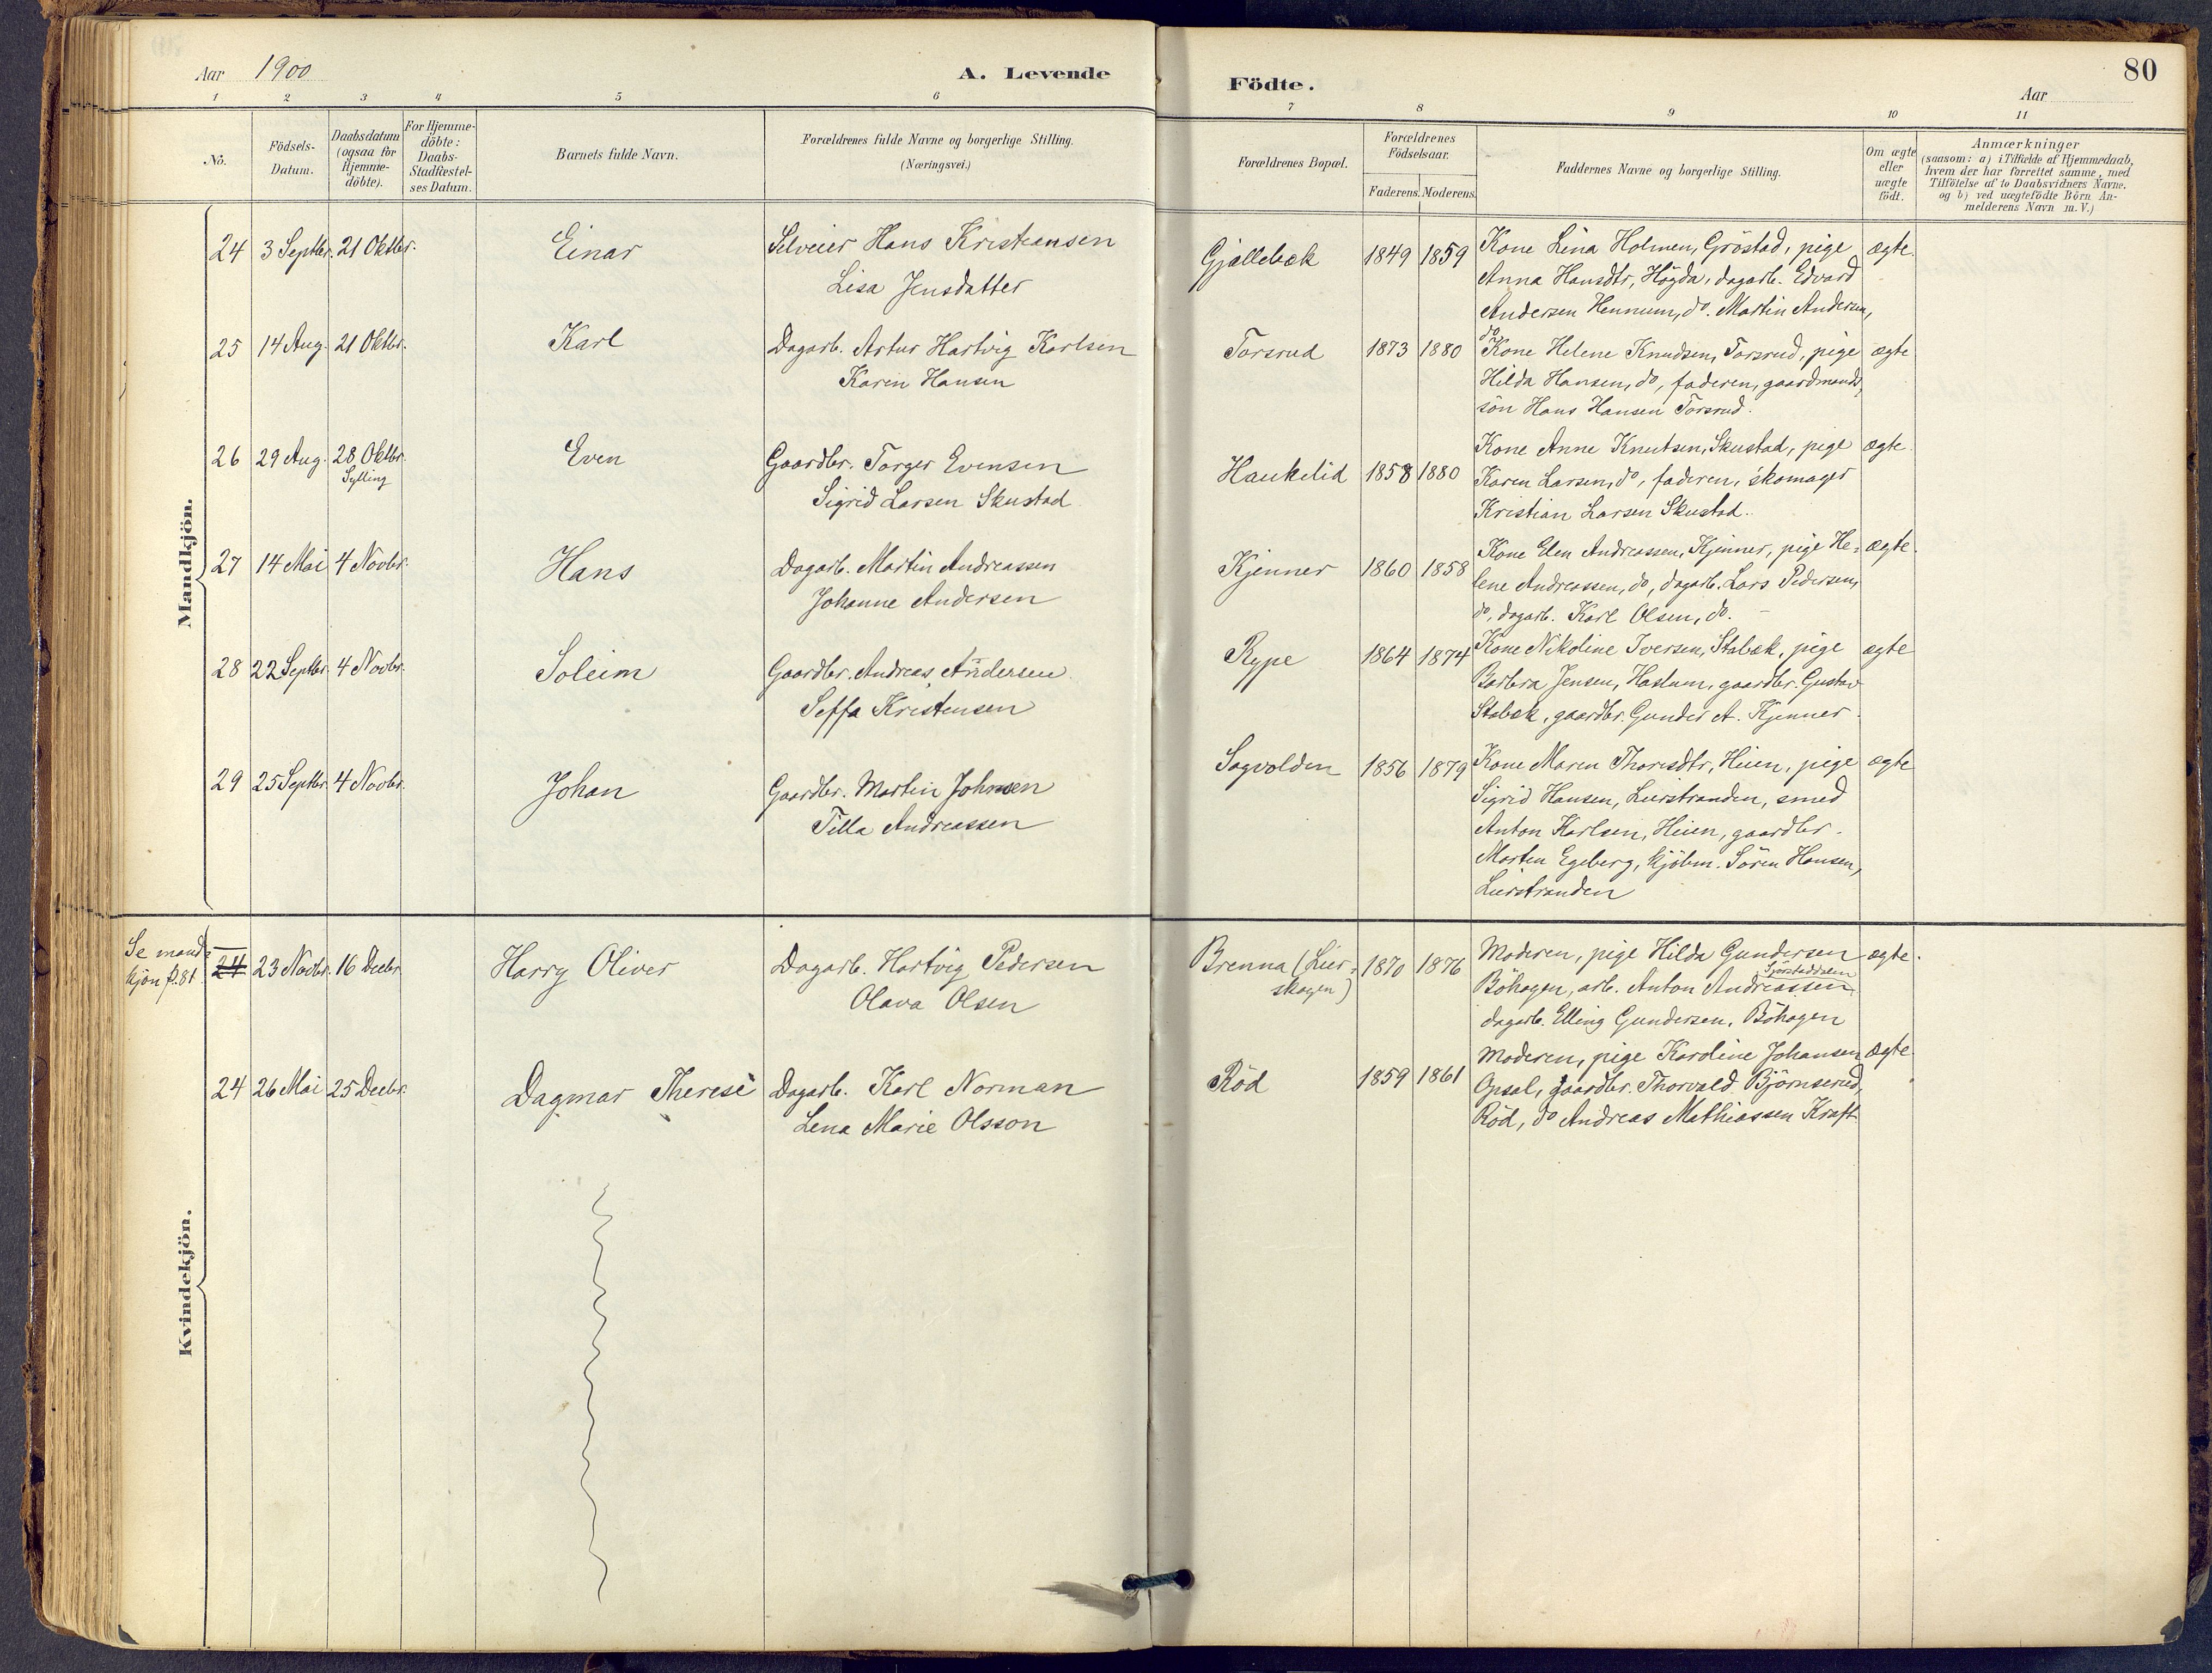 Aar 1900
A. Levende
Födte.
Aar
80
1 2 3 4 5 6 7 8 9 10 11
No.
Födsels-
Datum.
Daabsdatum
(ogsaa for
Hjemme-
döbte).
For Hjemme-
döbte:
Daabs-
Stadfæstel-
ses Datum.
Barnets fulde Navn.
Forældrenes fulde Navne og borgerlige Stilling.
(Næringsvei.)
Forældrenes Bopæl.
Forældrenes
Födselsaar.
Faderens. Moderens.
Faddernes Navne og borgerlige Stilling.
Om ægte
eller
uægte
födt.
Anmærkninger
(saasom: a) i Tilfælde af Hjemmedaab,
hvem der har forrettet samme, med
Tilföielse af to Daabsvidners Navne.
og b) ved uægtefödte Börn An-
melderens Navn m. V.)
Mandkjön.
24 3 Septbr. 21 Oktbr. Einar
Selveier Hans Kristiansen
Lisa Jensdatter
Gjellebæk 1849 1859
Kone Lina Holmen, Gröstad, pige
Anna Hansdtr, Högda, dagarb. Edvard
Andersen Hennum, do. Martin Andersen,
do
ægte.
25 14 Aug. 21 Oktbr. Karl
Dagarb. Artur Hartvig Karlsen
Karin Hansen
Torsrud 1873 1880
Kone Helene Knudsen, Torsrud, pige
Hilda Hansen, do, faderen, gaardmands
sön Hans Hansen Torsrud.
ægte
26 29 Aug. 28 Oktbr.
Sylling
Even
Gaardbr. Torger Evensen
Sigrid Larsen Skustad
Haukelid 1858 1880
Kone Anne Knutsen, Skustad, pige
Karen Larsen, do, faderen, skomager
Kristian Larsen Skustad.
ægte.
27 14 Mai 4 Novbr. Hans
Dagarb. Martin Andreassen
Johanne Andersen
Kjenner 1860 1858
Kone Elen Andreassen, Kjenner, pige He-
lene Andreassen, do, dagarb. Lars Pedersen,
do, dagarb. Karl Olsen, do. –
ægte.
28 22 Septbr. 4 Novbr. Soleim
Gaardbr. Andreas Andersen
Seffa Kristensen
Rype 1864 1874
Kone Nikoline Iversen, Stabæk, pige
Barbra Jensen, Haslum, gaardbr. Gustav
Stabæk, gaardbr. Gunder A. Kjenner.
ægte
29 25 Septbr. 4 Novbr. Johan
Gaardbr. Martin Johnsen
Tilla Andreassen
Sagvolden 1856 1879
Kone Maren Thoresdtr, Hiien, pige
Sigrid Hansen, Lierstranden, smed
Anton Karlsen, Hiien, gaardbr.
Morten Egeberg, kjöbm. Sören Hansen,
Lierstranden
ægte
Kvindekjön.
Se mand-
kjön p. 81
24 23 Novbr. 16 Decbr. Harry Oliver
Dagarb. Hartvig Pedersen
Olava Olsen
Brenna (Lier-
skogen)
1870 1876
Moderen, pige Hilda Gundersen
Böhagen, arb. Anton Andreassen
dagarb. Elling Gundersen, Böhagen
ægte.
24 26 Mai 25 Decbr. Dagmar Therese
Dagarb. Karl Norman
Lena Marie Olsson
Röd 1859 1861
Moderen, pige Karoline Johansen
Opsal, gaardbr. Thorvald Björnserud,
Röd, do Andreas Mathiassen Kraft
ægte.